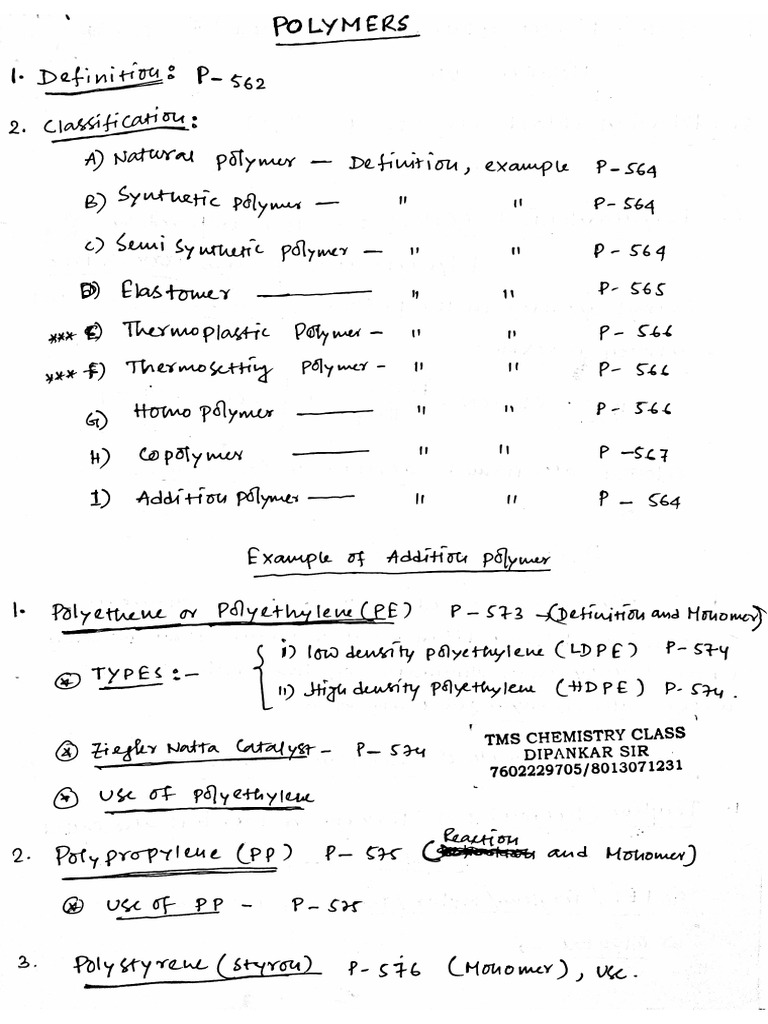 POLYMERS
1. Definition: P-562
2. Classification:
A) Natural polymer — Definition, example P-564
B) Synthetic polymer — " " P-564
C) Semi synthetic polymer — " " P-564
D) Elastomer — " " P-565
*** E) Thermoplastic Polymer - " " P-566
*** F) Thermosetting Polymer - " " P-566
G) Homo polymer — " " P-566
H) Copolymer — " " P-567
I) Addition polymer — " " P-564
Example of Addition polymer
1. Polyethene or Polyethylene (PE) P-573 → (Definition and Monomer)
* TYPES:- { i) low density polyethylene (LDPE) P-574
ii) High density polyethylene (HDPE) P-574.
* Ziegler Natta Catalyst - P-574
TMS CHEMISTRY CLASS
DIPANKAR SIR
7602229705/8013071231
* Use of polyethylene
2. Polypropylene (PP) P-575 (Reaction and Monomer)
* Use of PP - P-575
3. Polystyrene (styron) P-576 (Monomer), use.